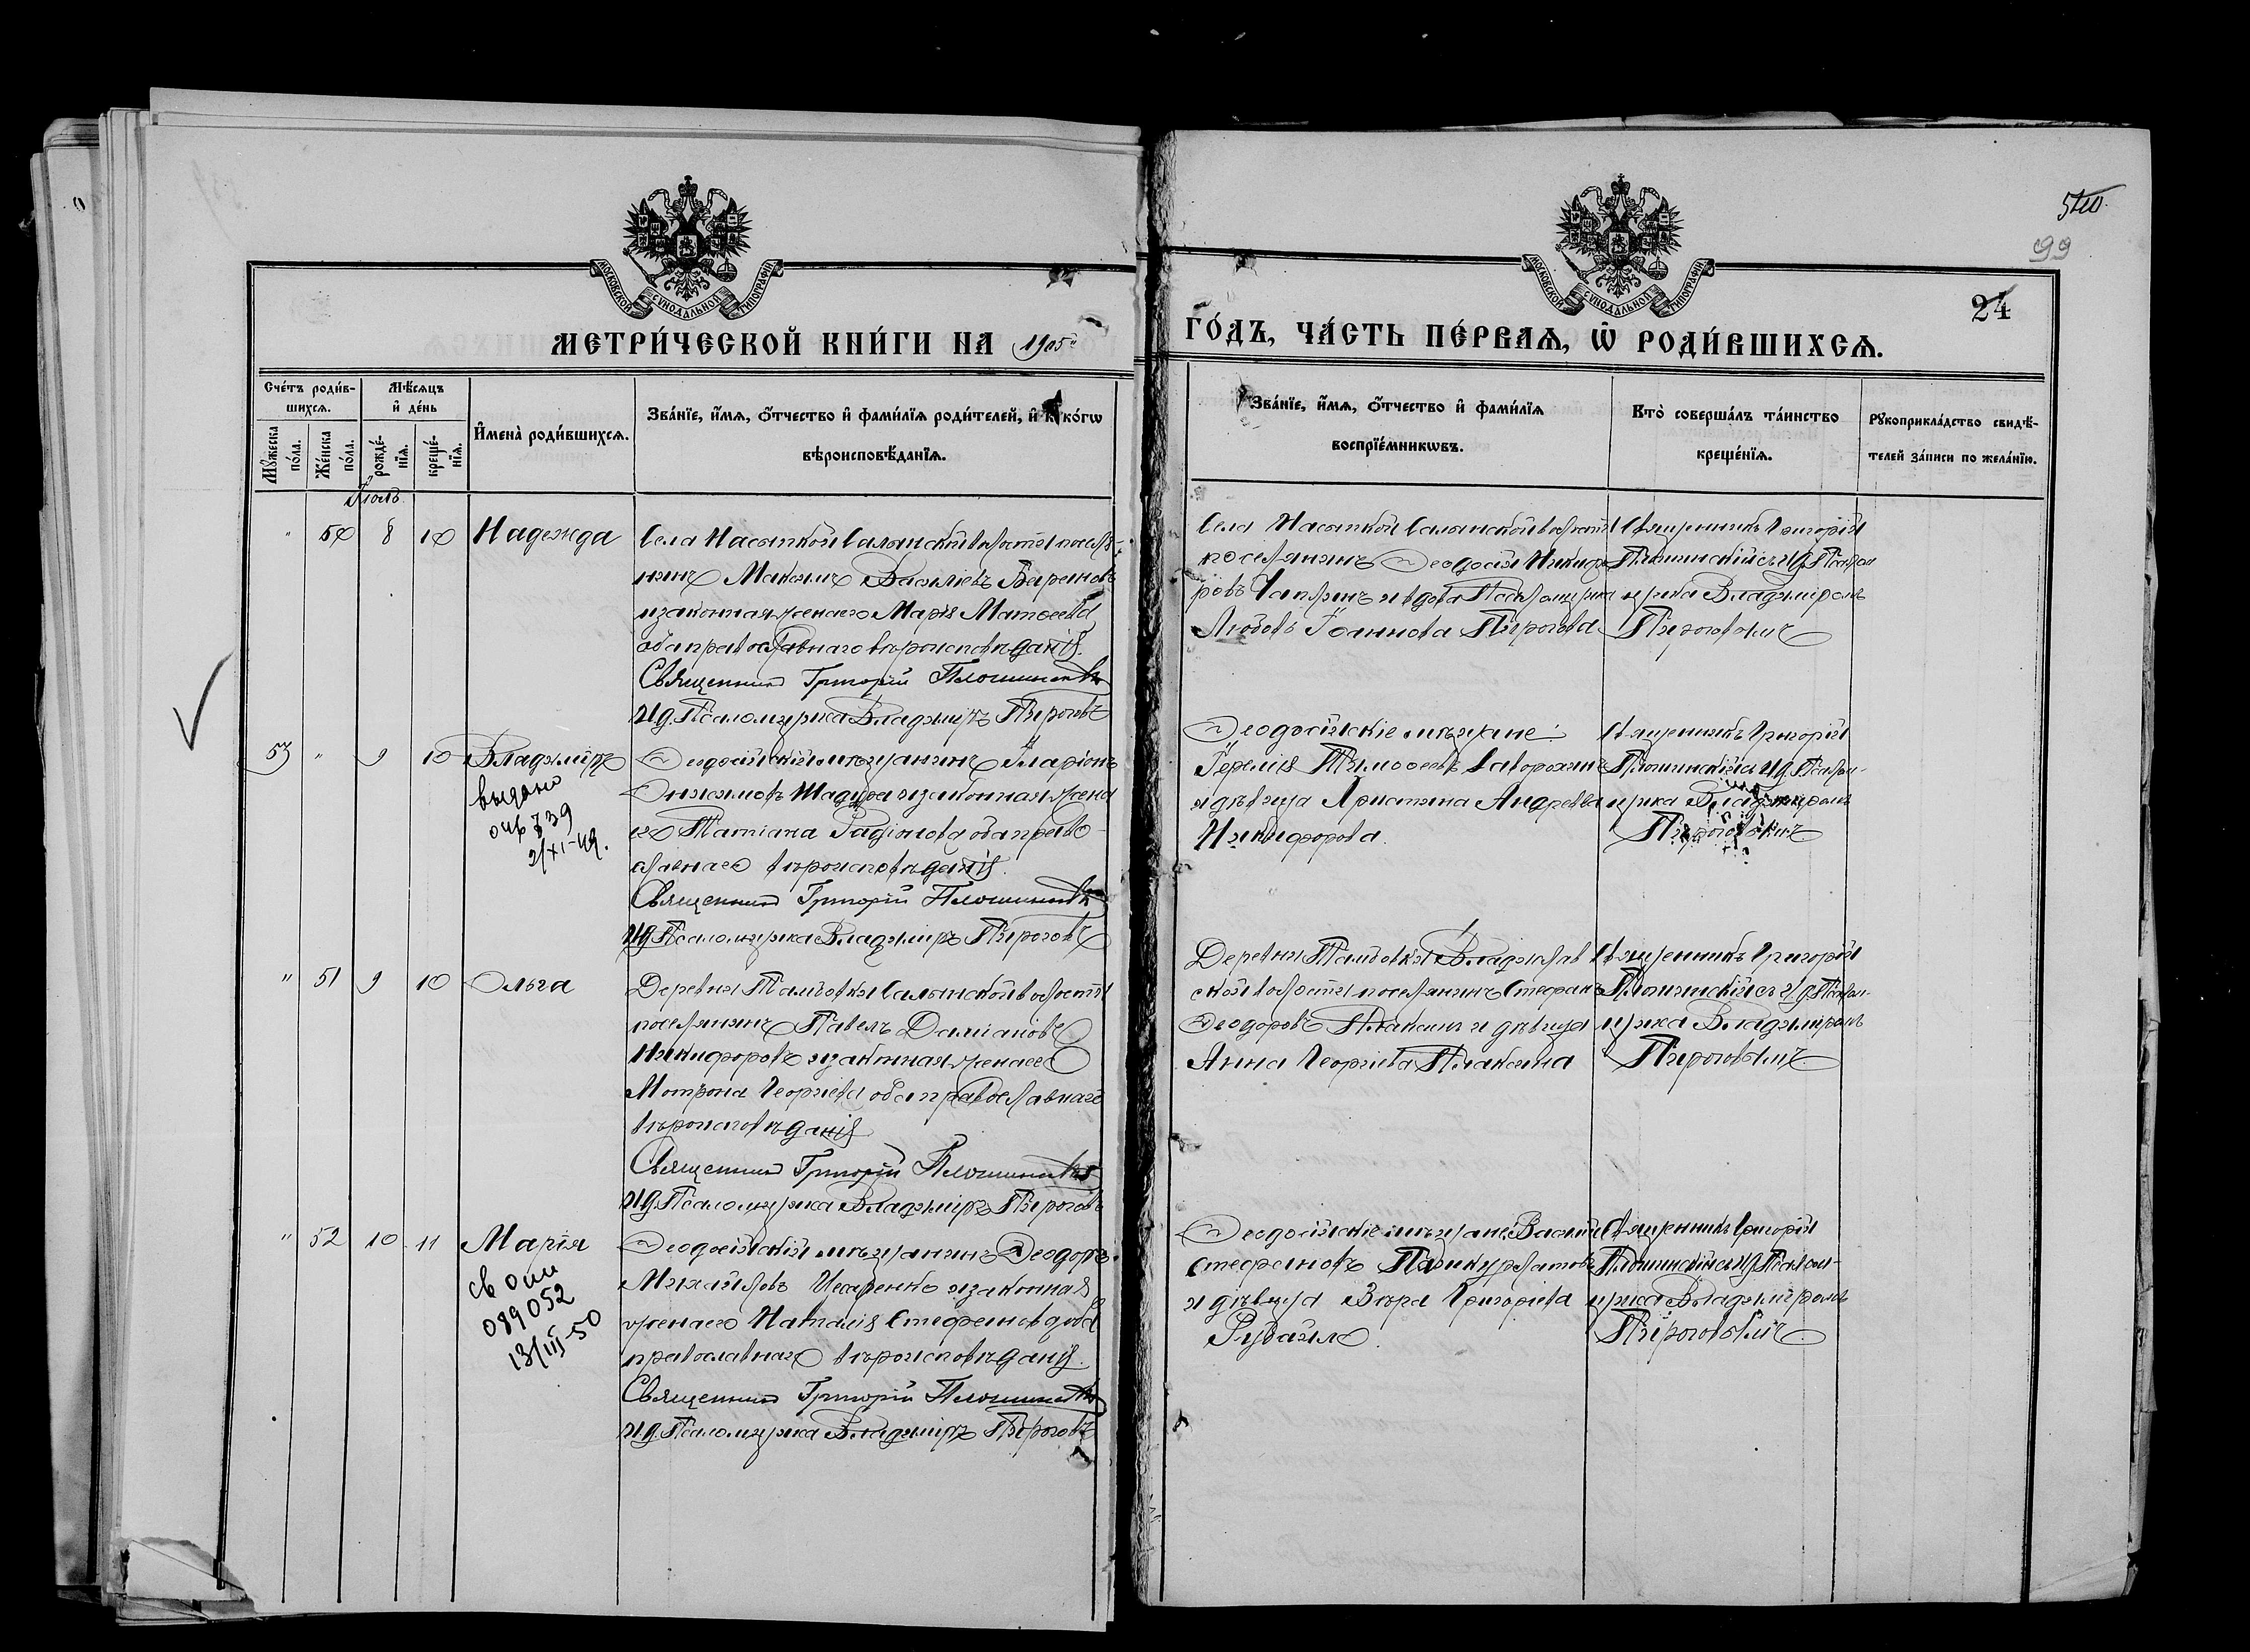 5
99
24
МОСКОВСКОЙ СѴНОДАЛЬНОЙ ТИПОГРАФІИ
МОСКОВСКОЙ СѴНОДАЛЬНОЙ ТИПОГРАФІИ
МЕТРИ́ЧЕСКОЙ КНИ́ГИ НА 1905й
ГО́ДЪ, ЧА́СТЬ ПЕ́РВАѦ, Ѿ РОДИ́ВШИХСѦ.
Сче́тъ роди́в-
шихсѧ.
Мꙋ́жеска по́ла.
Же́нска по́ла.
Мѣ́сѧцъ
и҆ де́нь
рожде́-
нїѧ.
креще́-
нїѧ.
И҆мена̀ роди́вшихсѧ.
Зва́нїе, и҆́мѧ, ѻ҆́тчество и҆ фами́лїѧ роди́телей, и҆ ко́гѡ
вѣроисповѣ́данїѧ.
Зва́нїе, и҆́мѧ, ѻ҆́тчество и҆ фами́лїѧ
воспрїе́мникѡвъ.
Кто̀ соверша́лъ та́инство
креще́нїѧ.
Рꙋкоприкла́дство свидѣ́-
телей за́писи по жела́нїю.
Іюль
" 50 8 10 Надежда
Села Насыпкой Салынской волости поселя-
нинъ Максимъ Василіевъ
и законная жена его Марія Матѳеева
оба православнаго вѣроисповѣданія.
Священник Григорій
И.д. Псаломщика Владиміръ Пироговъ
Села Насыпкой Салынской волости
поселянинъ Ѳеодосій Никифо
ровъ и вдова Псаломщика
Любовь Іоаннова Пирогова
Священникъ Григорій
съ И.д. Псалом
щика Владиміромъ
Пироговымъ
53 " 9 10 Владиміръ
выдано
739
2/XI-49.
Ѳеодосійскій мѣщанинъ Иларіонъ
Онисимовъ и законная жена
его Татіана Радіонова оба право
славнаго вѣроисповѣданія.
Священник Григорій
И.д. Псаломщика Владиміръ Пироговъ
Ѳеодосійскіе мѣщане:
Іеремія Тимоѳеевъ
и дѣвица Христина Андреева
Никифорова.
Священникъ Григорій
съ И.д. Псалом-
щика Владиміромъ
Пироговымъ
" 51 9 10 Ольга
Деревни Тамбовки Салынской волости
поселянинъ Павелъ Даміановъ
Никифоровъ и законная жена его
Мотрона Георгіева оба православнаго
вѣроисповѣданія
Священник Григорій
И.д. Псаломщика Владиміръ Пироговъ
Деревни Тамбовки Владислав
ской волости поселянинъ Стефанъ
Ѳеодоровъ Плаксинъ и дѣвица
Анна Георгіева Плаксина
Священникъ Григорій
съ И.д. Псалом-
щика Владиміромъ
Пироговымъ
" 52 10 11 Марія
св
089052
13/III-50
Ѳеодосійскій мѣщанинъ Ѳеодоръ
Михайловъ и законная
жена его Наталія Стефанова оба
православнаго вѣроисповѣданія.
Священник Григорій
И.д. Псаломщика Владиміръ Пироговъ
Ѳеодосійскіе мѣщане: Василій
Стефановъ
и дѣвица Вѣра Григоріева
Священникъ Григорій
съ И.д. Псалом-
щика Владиміромъ
Пироговымъ